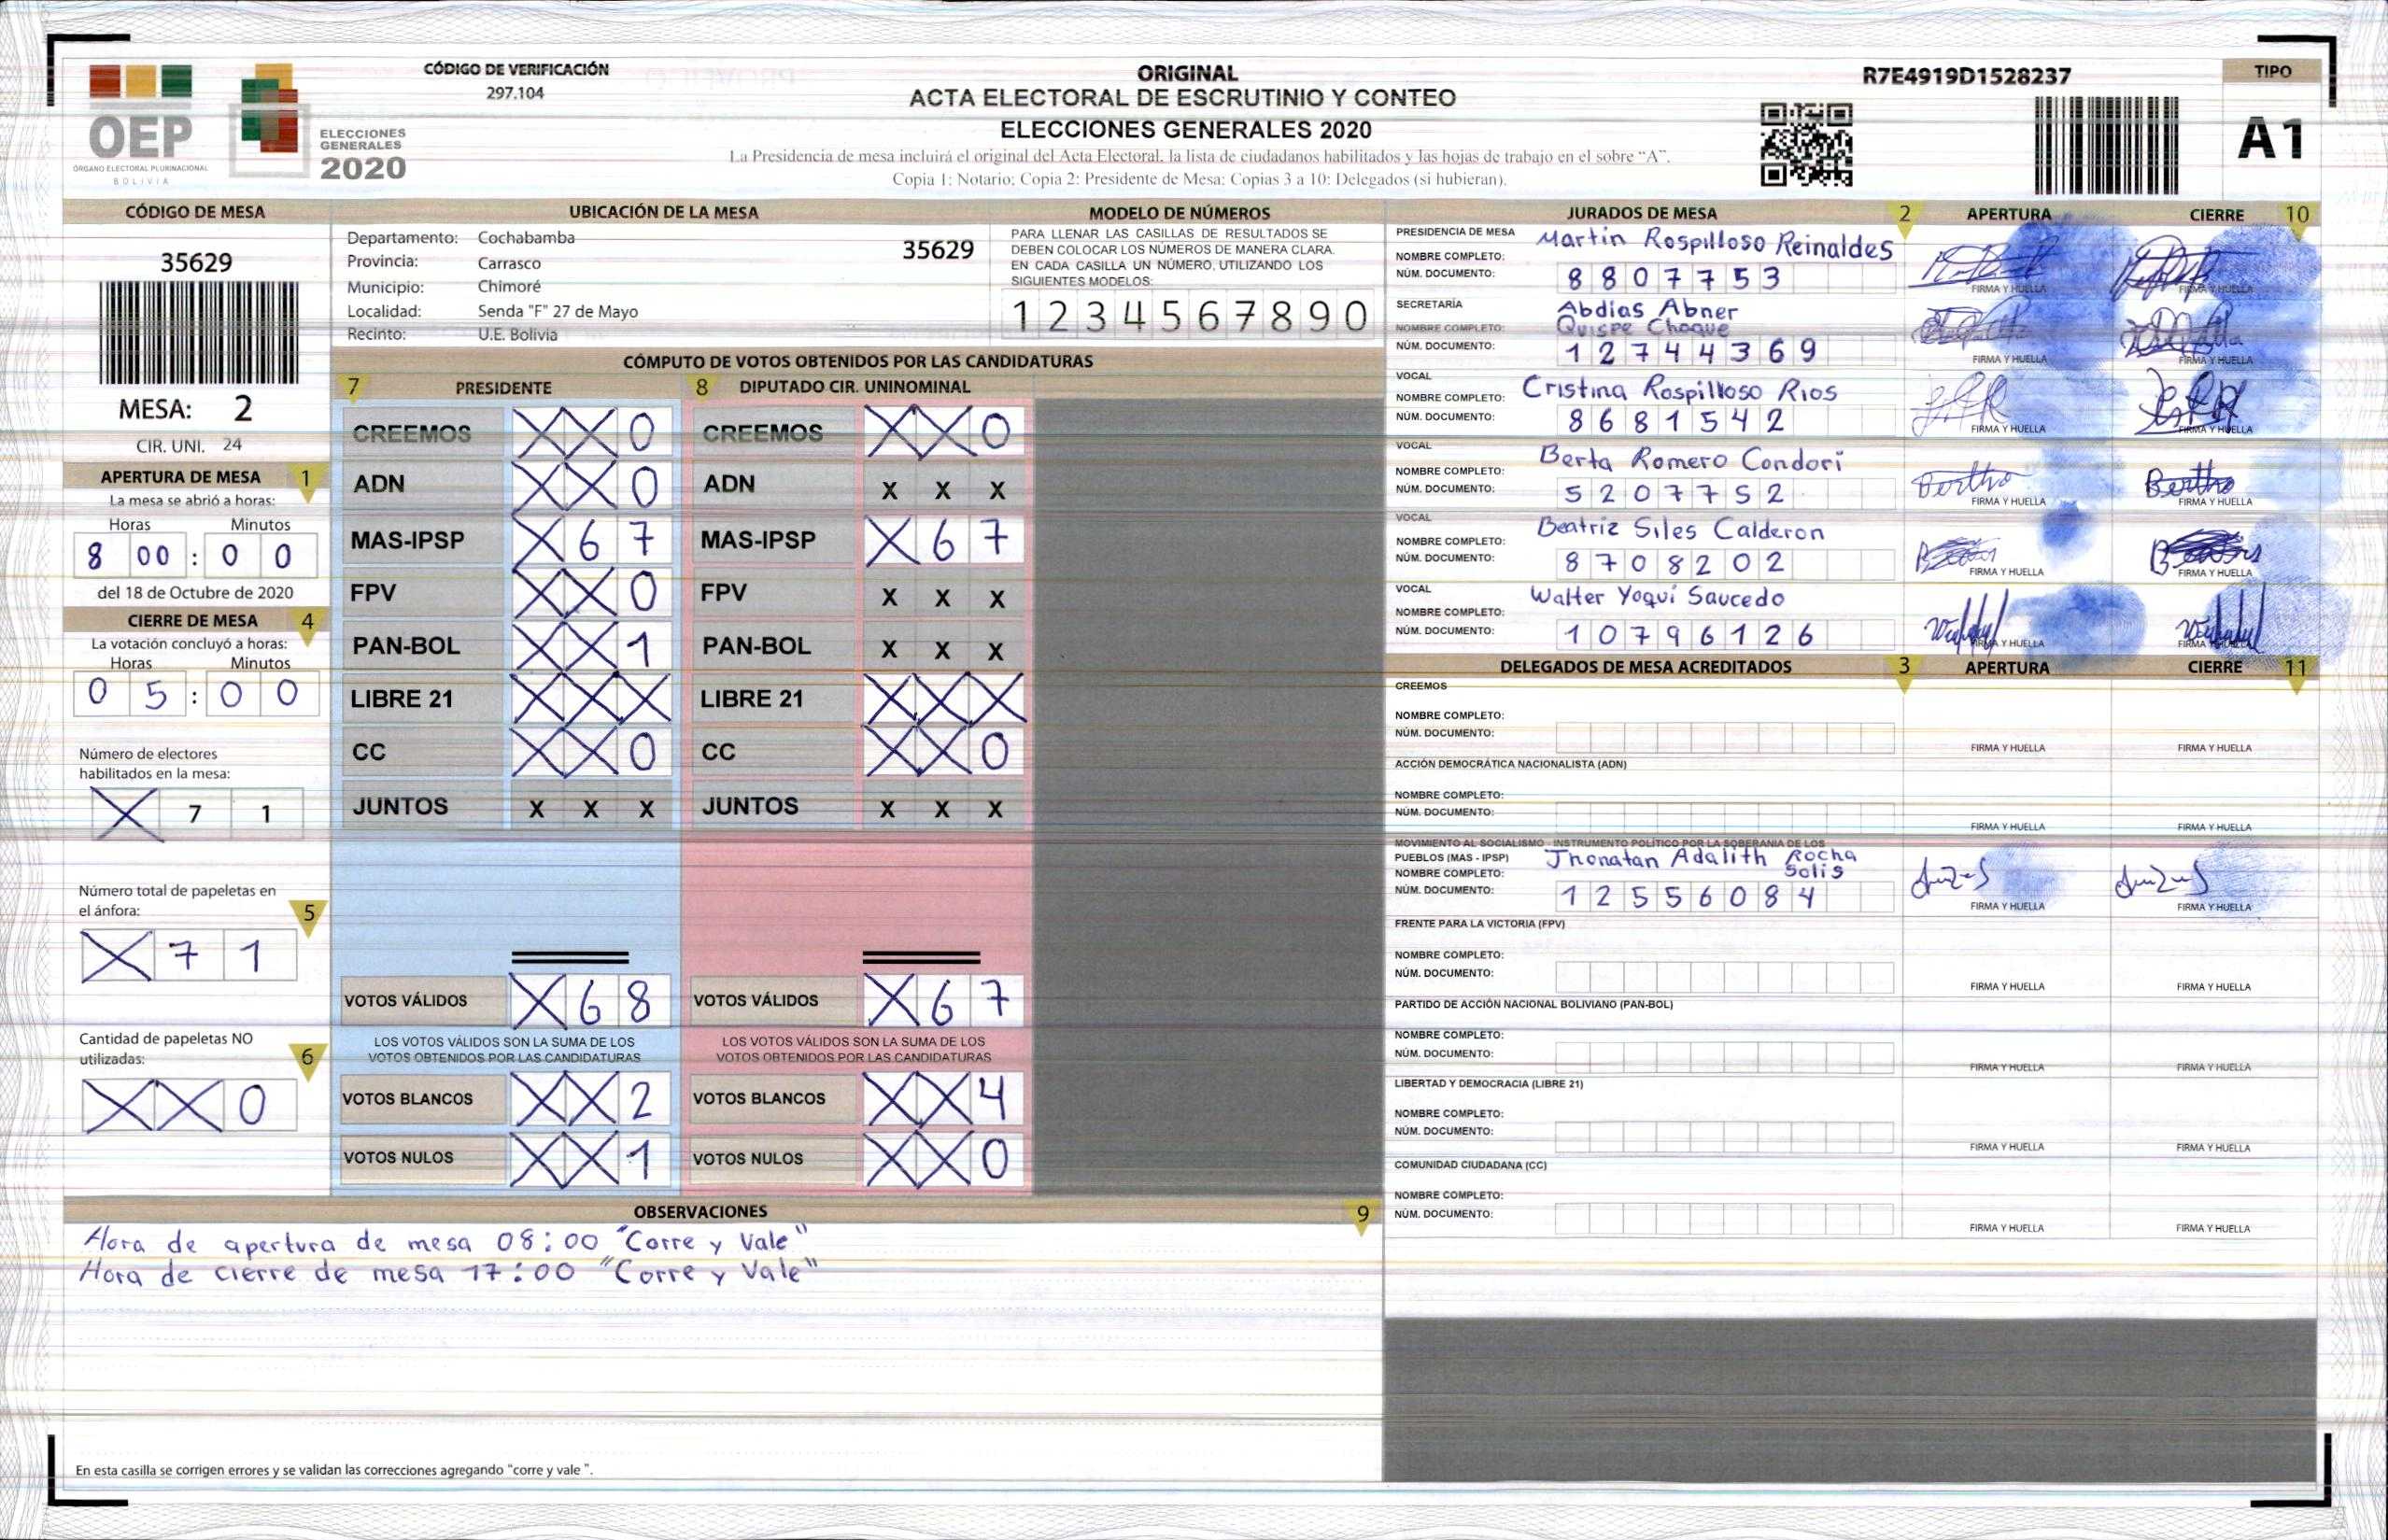 OEP
ÓRGANO ELECTORAL PLURINACIONAL
BOLIVIA
ELECCIONES
GENERALES
2020
CÓDIGO DE VERIFICACIÓN
297.104
ORIGINAL
ACTA ELECTORAL DE ESCRUTINIO Y CONTEO
ELECCIONES GENERALES 2020
La Presidencia de mesa incluirá el original del Acta Electoral, la lista de ciudadanos habilitados y las hojas de trabajo en el sobre “A”.
Copia 1: Notario; Copia 2: Presidente de Mesa; Copias 3 a 10: Delegados (si hubieran).
R7E4919D1528237
TIPO
A1
CÓDIGO DE MESA
35629
MESA: 2
CIR. UNI. 24
APERTURA DE MESA 1
La mesa se abrió a horas:
Horas Minutos
8 00 : 0 0
del 18 de Octubre de 2020
CIERRE DE MESA 4
La votación concluyó a horas:
Horas Minutos
0 5 : 0 0
Número de electores
habilitados en la mesa:
X 7 1
Número total de papeletas en
el ánfora: 5
X 7 1
Cantidad de papeletas NO
utilizadas: 6
X X 0
UBICACIÓN DE LA MESA
Departamento: Cochabamba 35629
Provincia: Carrasco
Municipio: Chimoré
Localidad: Senda "F" 27 de Mayo
Recinto: U.E. Bolivia
MODELO DE NÚMEROS
PARA LLENAR LAS CASILLAS DE RESULTADOS SE
DEBEN COLOCAR LOS NÚMEROS DE MANERA CLARA.
EN CADA CASILLA UN NÚMERO, UTILIZANDO LOS
SIGUIENTES MODELOS:
1 2 3 4 5 6 7 8 9 0
CÓMPUTO DE VOTOS OBTENIDOS POR LAS CANDIDATURAS
7 PRESIDENTE 8 DIPUTADO CIR. UNINOMINAL
CREEMOS X X 0 CREEMOS X X 0
ADN X X 0 ADN X X X
MAS-IPSP X 6 7 MAS-IPSP X 6 7
FPV X X 0 FPV X X X
PAN-BOL X X 1 PAN-BOL X X X
LIBRE 21 X X X LIBRE 21 X X X
CC X X 0 CC X X 0
JUNTOS X X X JUNTOS X X X
VOTOS VÁLIDOS X 6 8 VOTOS VÁLIDOS X 6 7
LOS VOTOS VÁLIDOS SON LA SUMA DE LOS LOS VOTOS VÁLIDOS SON LA SUMA DE LOS
VOTOS OBTENIDOS POR LAS CANDIDATURAS VOTOS OBTENIDOS POR LAS CANDIDATURAS
VOTOS BLANCOS X X 2 VOTOS BLANCOS X X 4
VOTOS NULOS X X 1 VOTOS NULOS X X 0
OBSERVACIONES 9
Hora de apertura de mesa 08:00 "Corre y Vale"
Hora de cierre de mesa 17:00 "Corre y Vale"
En esta casilla se corrigen errores y se validan las correcciones agregando “corre y vale ”.
JURADOS DE MESA 2 APERTURA CIERRE 10
PRESIDENCIA DE MESA Martin Rospilloso Reinaldes
NOMBRE COMPLETO:
NÚM. DOCUMENTO: 8 8 0 7 7 5 3
FIRMA Y HUELLA FIRMA Y HUELLA
SECRETARÍA Abdias Abner
NOMBRE COMPLETO: Quispe Choque
NÚM. DOCUMENTO: 1 2 7 4 4 3 6 9
FIRMA Y HUELLA FIRMA Y HUELLA
VOCAL
NOMBRE COMPLETO: Cristina Rospilloso Rios
NÚM. DOCUMENTO: 8 6 8 1 5 4 2
FIRMA Y HUELLA FIRMA Y HUELLA
VOCAL
NOMBRE COMPLETO: Berta Romero Condori
NÚM. DOCUMENTO: 5 2 0 7 7 5 2
Bertha Bertha
FIRMA Y HUELLA FIRMA Y HUELLA
VOCAL
NOMBRE COMPLETO: Beatriz Siles Calderon
NÚM. DOCUMENTO: 8 7 0 8 2 0 2
FIRMA Y HUELLA FIRMA Y HUELLA
VOCAL
NOMBRE COMPLETO: Walter Yoqui Saucedo
NÚM. DOCUMENTO: 1 0 7 9 6 1 2 6
FIRMA Y HUELLA FIRMA Y HUELLA
DELEGADOS DE MESA ACREDITADOS 3 APERTURA CIERRE 11
CREEMOS
NOMBRE COMPLETO:
NÚM. DOCUMENTO:
FIRMA Y HUELLA FIRMA Y HUELLA
ACCIÓN DEMOCRÁTICA NACIONALISTA (ADN)
NOMBRE COMPLETO:
NÚM. DOCUMENTO:
FIRMA Y HUELLA FIRMA Y HUELLA
MOVIMIENTO AL SOCIALISMO - INSTRUMENTO POLÍTICO POR LA SOBERANIA DE LOS
PUEBLOS (MAS - IPSP) Jhonatan Adalith Rocha
NOMBRE COMPLETO: Solis
NÚM. DOCUMENTO: 1 2 5 5 6 0 8 4
FIRMA Y HUELLA FIRMA Y HUELLA
FRENTE PARA LA VICTORIA (FPV)
NOMBRE COMPLETO:
NÚM. DOCUMENTO:
FIRMA Y HUELLA FIRMA Y HUELLA
PARTIDO DE ACCIÓN NACIONAL BOLIVIANO (PAN-BOL)
NOMBRE COMPLETO:
NÚM. DOCUMENTO:
FIRMA Y HUELLA FIRMA Y HUELLA
LIBERTAD Y DEMOCRACIA (LIBRE 21)
NOMBRE COMPLETO:
NÚM. DOCUMENTO:
FIRMA Y HUELLA FIRMA Y HUELLA
COMUNIDAD CIUDADANA (CC)
NOMBRE COMPLETO:
NÚM. DOCUMENTO:
FIRMA Y HUELLA FIRMA Y HUELLA